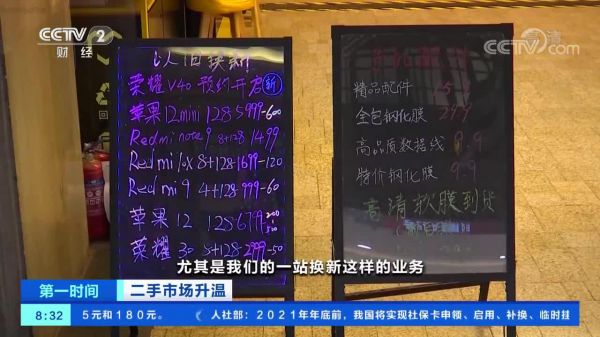 CCTV 2
财经
CCTV.com
高清
以旧换新
荣耀V40 预约开启 新
苹果12mini 128 5999-600
Redmi note9 8+128 1499
Redmi 10x 8+128 1699-120
Redmi 9 4+128 999-60
苹果12 128 6799
荣耀30 8+128 2999-50
精品配件
全包钢化膜 29.9
高品质数据线 9.9
特价钢化膜 9.9
高清软膜到货
尤其是我们的一站换新这样的业务
第一时间
二手市场升温
8:32
5元和180元。
人社部:2021年年底前,我国将实现社保卡申领、启用、补换、临时挂